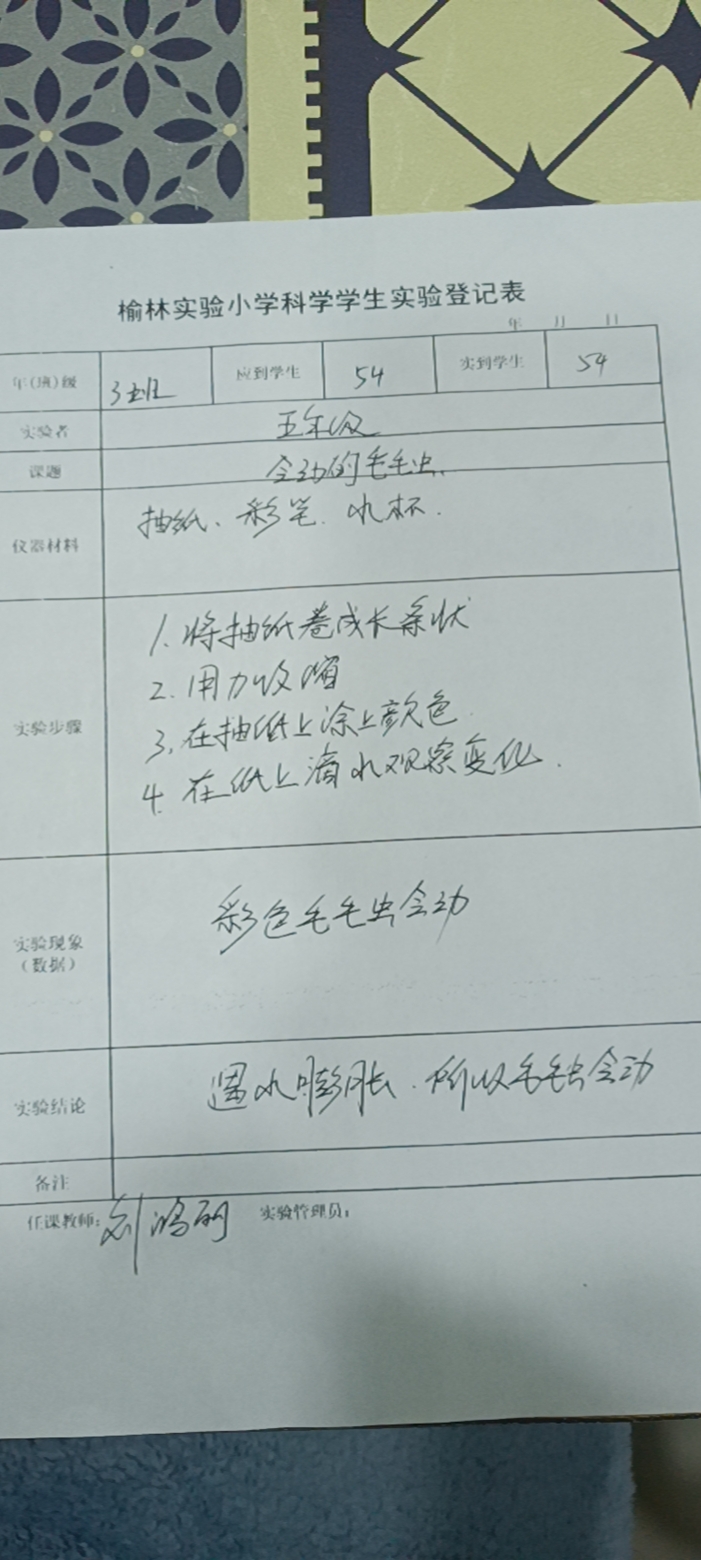 榆林实验小学科学学生实验登记表
年 月 日
年(班)级 应到学生 54 实到学生 54
实验者 五年级
课题 会动的毛毛虫
仪器材料 抽纸、彩笔. 水杯.
1. 将抽纸卷成长条状
2. 用力收缩
实验步骤 3. 在抽纸上涂上颜色.
4. 在纸上滴水观察变化.
实验现象 彩色毛毛虫会动
(数据)
实验结论 遇水膨胀. 所以毛毛虫会动
备注
任课教师: 刘鸿丽 实验管理员: